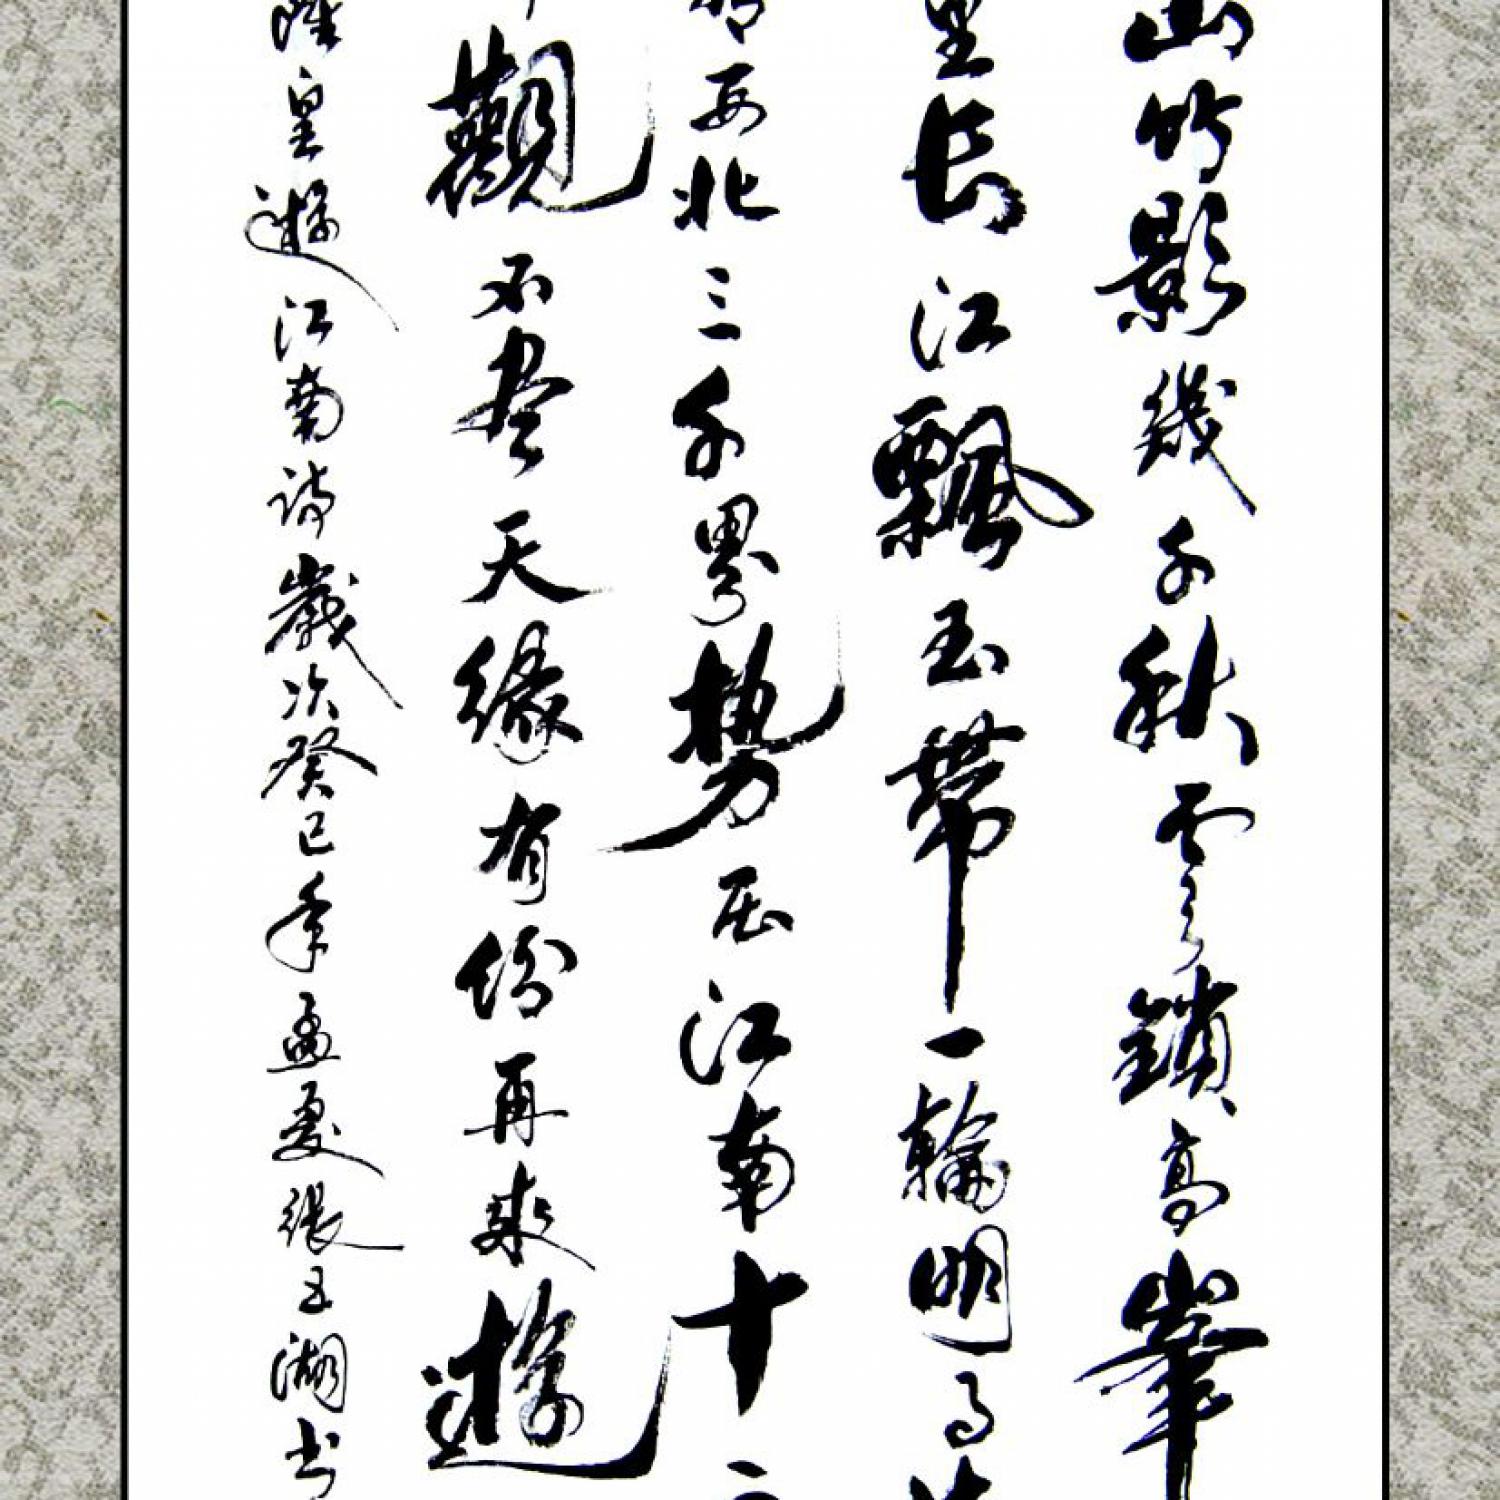 山竹影幾千秋雲鎖高峯
里长江飄玉帶一輪明月
西北三千界勢压江南十二
觀不尽天緣有份再来遊
隆皇遊江南诗歲次癸巳年孟夏張五湖书